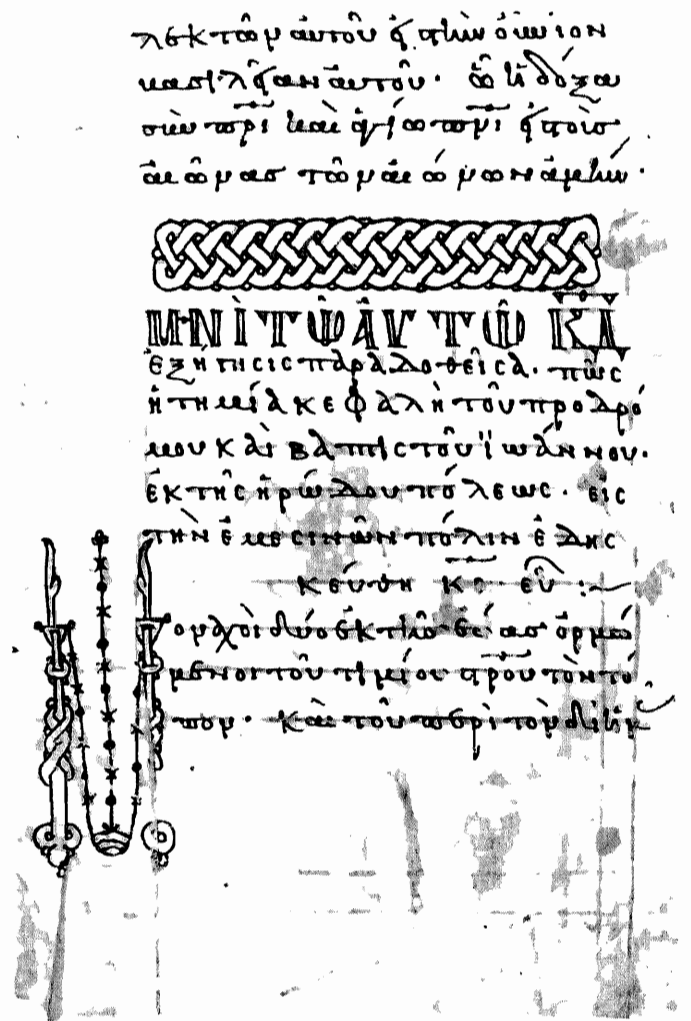 λεκτῶν αὐτοῦ ἐν τὴν αἰώνιον
βασιλείαν αὐτοῦ· ᾧ ἡ δόξα
σὺν πρι καὶ ἁγίω πνι εἰς τοὺς
αἰῶνας τῶν αἰώνων ἀμήν·
ΜΗΝΙ ΤΩ ΑΥΤΩ ΚΔ
ἐξήτησις παραδοθεῖσα· πῶς
ἡ τιμία κεφαλὴ τοῦ προδρό
μου καὶ βαπτιστοῦ ἰωάννου·
ἐκ τῆς ἡρώδου πόλεως· εἰς
τὴν ἐμεσινῶν πόλιν ἐδης
κεύθη κε εὐ :~
Μοναχοὶ δύο ἐκ τῆς ἑώας ὁρμώ
μενοι τοῦ τιμίου στρου τὸν τό
πον· καὶ τοῦ περὶ τὸν